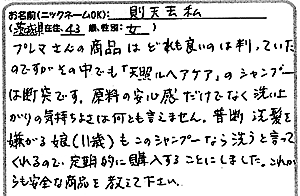 お名前(ニックネームOK): 則天去私
(茨城)在住、43歳、性別:女)
プレマさんの商品はどれも良いのは判っていた
のですがその中でも「天照ルヘアケア」のシャンプー
は断突です。原料の安心感だけでなく洗い上
がりの気持ちよさは何とも言えません。普断洗髪を
嫌がる娘(11歳)もこのシャンプーなら洗うと言って
くれるので、定期的に購入することにしました。これか
らも安全な商品を教えて下さい。